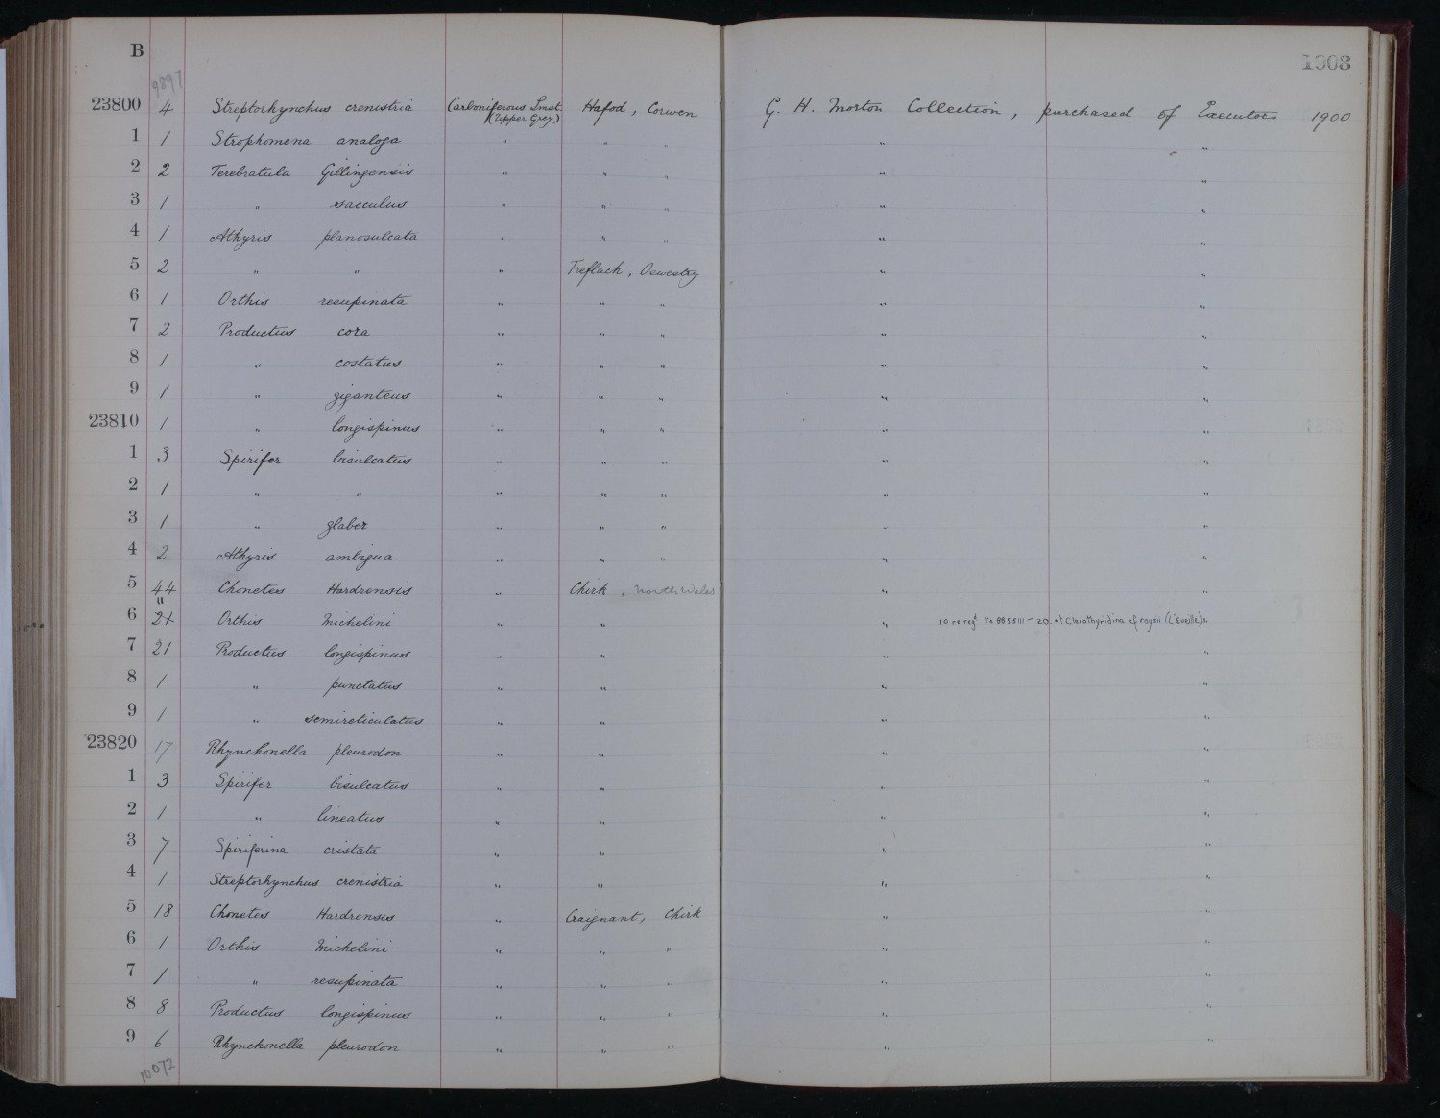 B 1003
9897
23800 4 Streptorhynchus crenistria Carboniferous Lmst. (Upper Grey.) Hafod, Corwen G. H. Morton Collection, purchased of Executors 1900
1 1 Strophomena analoga " " " " "
2 2 Terebratula Gillingensis " " " " "
3 1 " sacculus " " " " "
4 1 Athyris planosulcata " " " " "
5 2 " " " Treflach, Oswestry " "
6 1 Orthis resupinata " " " " "
7 2 Productus cora " " " " "
8 1 " costatus " " " " "
9 1 " giganteus " " " " "
23810 1 " longispinus " " " " "
1 3 Spirifer bisulcatus " " " " "
2 1 " " " " " " "
3 1 " glaber " " " " "
4 2 Athyris ambigua " " " " "
5 44 Chonetes Hardrensis " Chirk, North Wales " "
6 21 Orthis Michelini " " " 10 rereg'd as BB55111-20 as Cleiothyridina cf roysii (L'Eveille) "
7 21 Productus longispinus " " " "
8 1 " punctatus " " " "
9 1 " semireticulatus " " " "
23820 17 Rhynchonella pleurodon " " " "
1 3 Spirifer bisulcatus " " " "
2 1 " lineatus " " " "
3 7 Spiriferina cristata " " " "
4 1 Streptorhynchus crenistria " " " "
5 18 Chonetes Hardrensis " Craignant, Chirk " "
6 1 Orthis Michelini " " " " "
7 1 " resupinata " " " " "
8 8 Productus longispinus " " " " "
9 6 Rhynchonella pleurodon " " " " "
10072